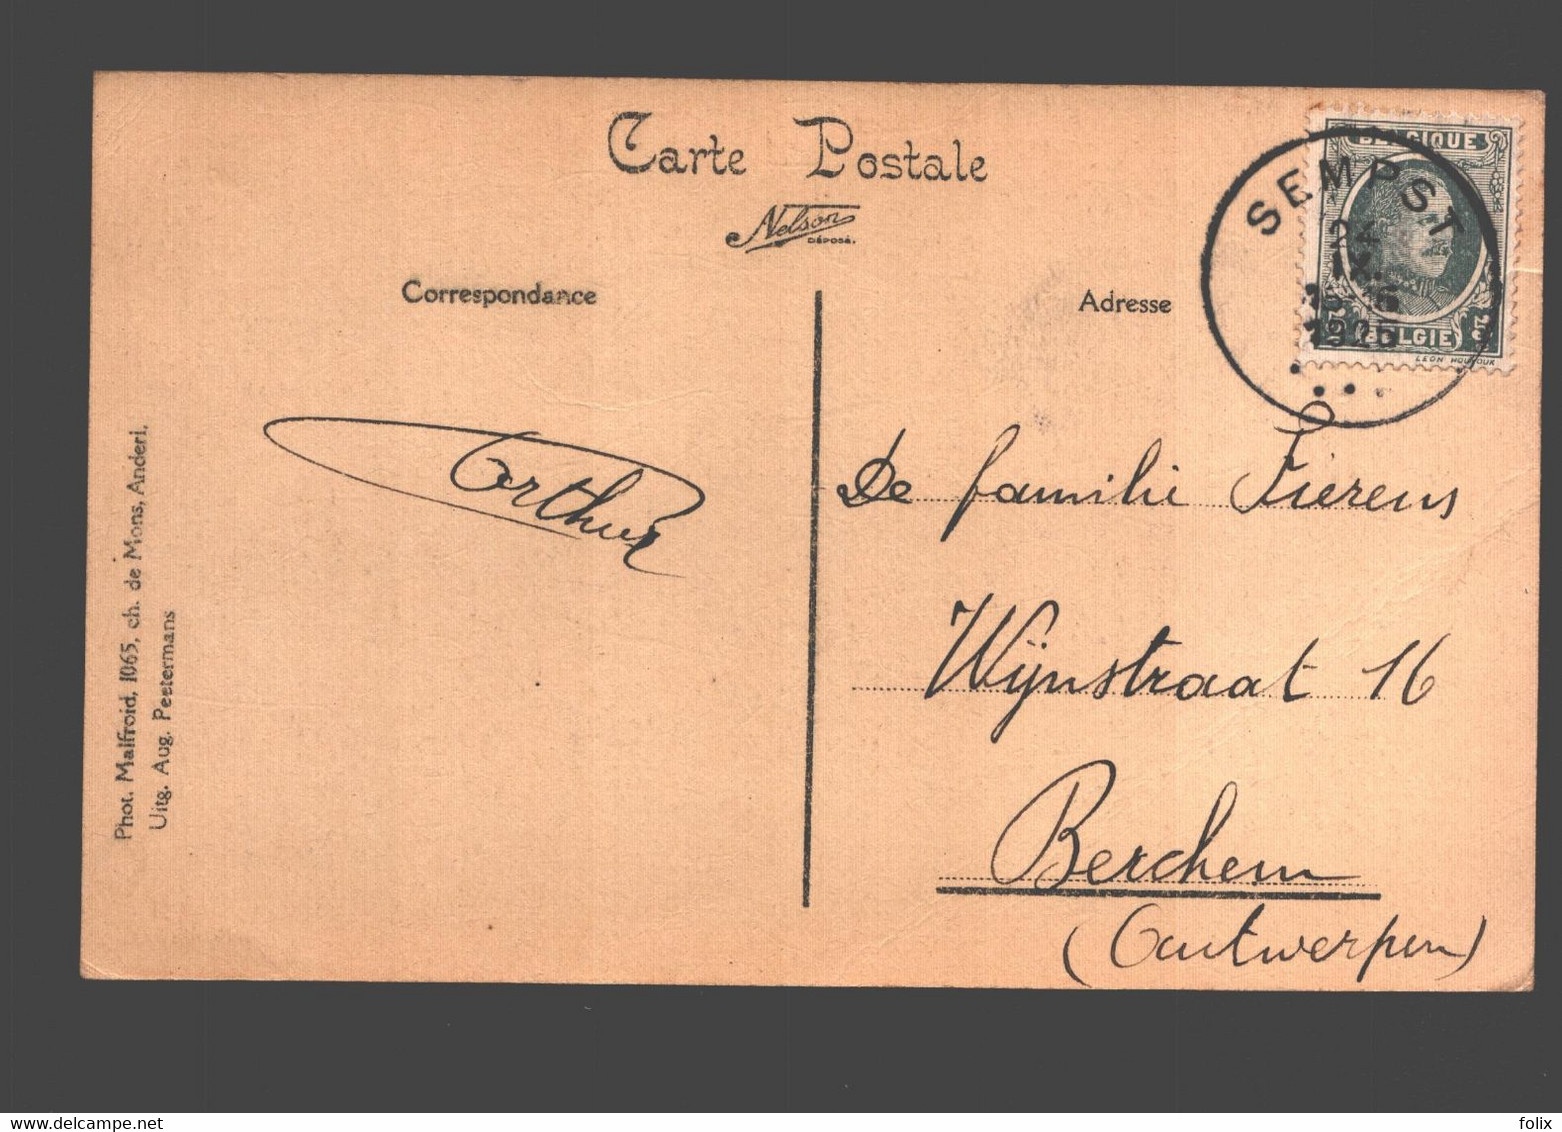 Carte Postale
Nelson
DÉPOSÉ.
Correspondance
Adresse
SEMPST
24
IX.
15-16
BELGIQUE
BELGIE
Arthur
De familie Fierens
Wijnstraat 16
Berchem
(Antwerpen)
Phot. Malfroid, 1065, ch. de Mons, Anderl.
Uitg. Aug. Peetermans
folix